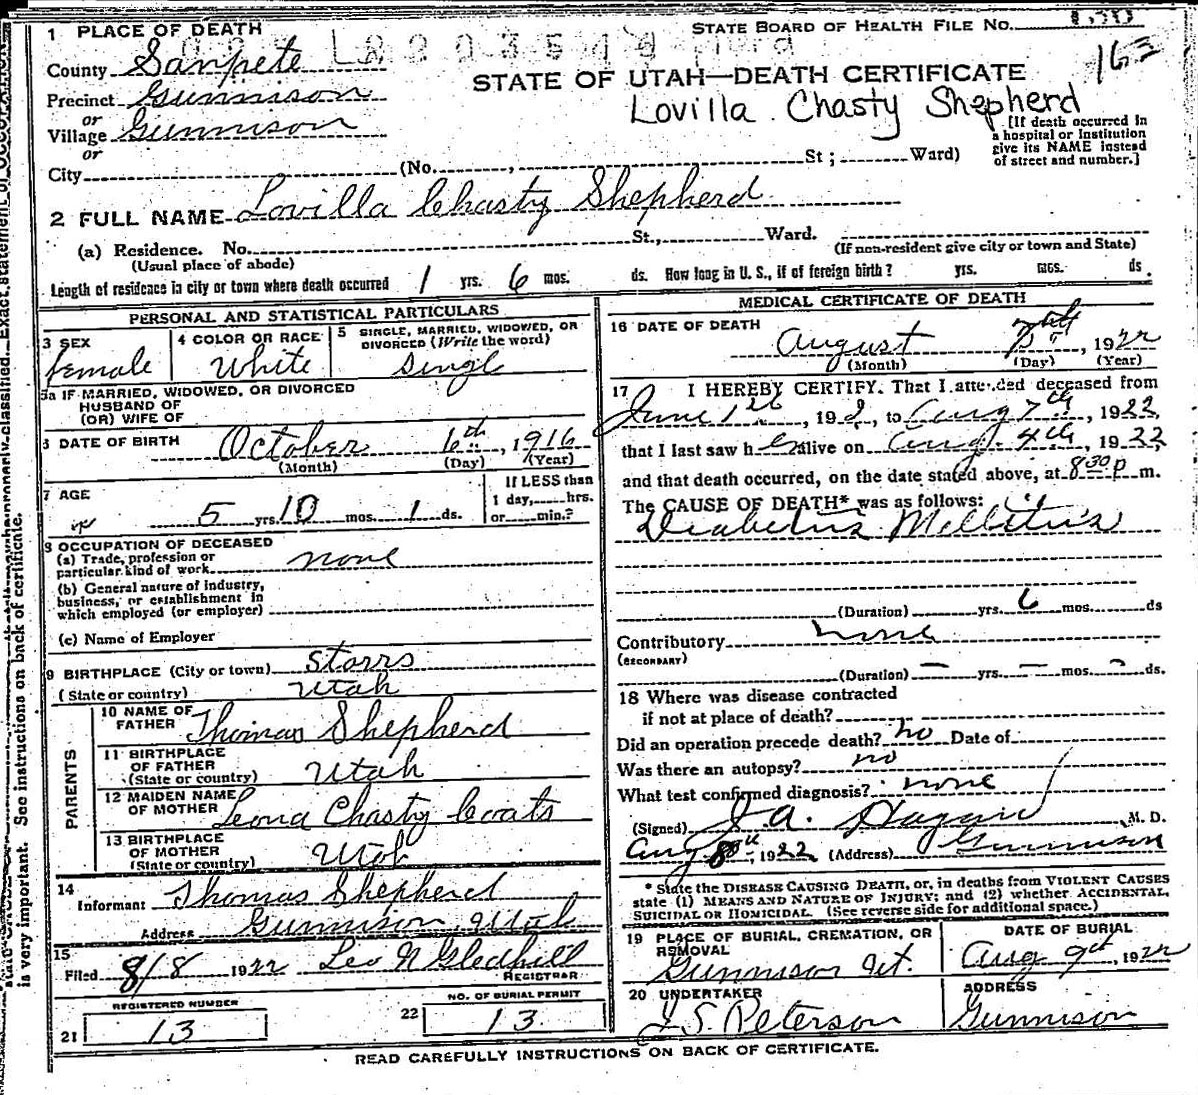 STATE BOARD OF HEALTH FILE NO.
163
STATE OF UTAH—DEATH CERTIFICATE
Lovilla Chasty Shepherd
1 PLACE OF DEATH
County Sanpete
Precinct Gunnison
or
Village Gunnison
or
City (No. , St ; Ward)
[If death occurred in
a hospital or institution
give its NAME instead
of street and number.]
2 FULL NAME Lovilla Chasty Shepherd
(a) Residence. No. St., Ward.
(Usual place of abode) (If non-resident give city or town and State)
Length of residence in city or town where death occurred 1 yrs. 6 mos. ds. How long in U. S., if of foreign birth? yrs. mos. ds.
PERSONAL AND STATISTICAL PARTICULARS
3 SEX
female
4 COLOR OR RACE
White
5 SINGLE, MARRIED, WIDOWED, OR
DIVORCED (Write the word)
Singl
5a IF MARRIED, WIDOWED, OR DIVORCED
HUSBAND OF
(OR) WIFE OF
6 DATE OF BIRTH October 6th, 1916
(Month) (Day) (Year)
7 AGE
5 yrs. 10 mos. 1 ds.
If LESS than
1 day, hrs.
or min.?
8 OCCUPATION OF DECEASED
(a) Trade, profession or
particular kind of work none
(b) General nature of industry,
business, or establishment in
which employed (or employer)
(c) Name of Employer
9 BIRTHPLACE (City or town) Storrs
(State or country) Utah
PARENTS
10 NAME OF
FATHER Thomas Shepherd
11 BIRTHPLACE
OF FATHER
(State or country) Utah
12 MAIDEN NAME
OF MOTHER Leona Chasty Coats
13 BIRTHPLACE
OF MOTHER
(State or country) Utah
14
Informant Thomas Shepherd
Address Gunnison Utah
15
Filed 8/8 1922 Leo N Gledhill
REGISTRAR
REGISTERED NUMBER
21 13
NO. OF BURIAL PERMIT
22 13
MEDICAL CERTIFICATE OF DEATH
16 DATE OF DEATH
August 7th, 1922
(Month) (Day) (Year)
17 I HEREBY CERTIFY, That I attended deceased from
June 1st 192, to Aug 7th, 1922,
that I last saw her alive on Aug. 4th, 1922,
and that death occurred, on the date stated above, at 8 30 p m.
The CAUSE OF DEATH* was as follows:
Diabetus Mellitus
(Duration) yrs. 6 mos. ds
Contributory none
(SECONDARY)
(Duration) – yrs. – mos. – ds.
18 Where was disease contracted
if not at place of death?
Did an operation precede death? no Date of
Was there an autopsy? no
What test confirmed diagnosis? none
(Signed) J. A. Hagan M. D.
Aug 8th, 1922 (Address) Gunnison
* State the DISEASE CAUSING DEATH, or, in deaths from VIOLENT CAUSES
state (1) MEANS AND NATURE OF INJURY; and (2) whether ACCIDENTAL,
SUICIDAL OR HOMICIDAL. (See reverse side for additional space.)
19 PLACE OF BURIAL, CREMATION, OR
REMOVAL
Gunnison Ut.
DATE OF BURIAL
Aug 9th, 1922
20 UNDERTAKER
J S. Peterson
ADDRESS
Gunnison
READ CAREFULLY INSTRUCTIONS ON BACK OF CERTIFICATE.
is very important. See instructions on back of certificate.
properly classified. Exact statement of OCCUPATION